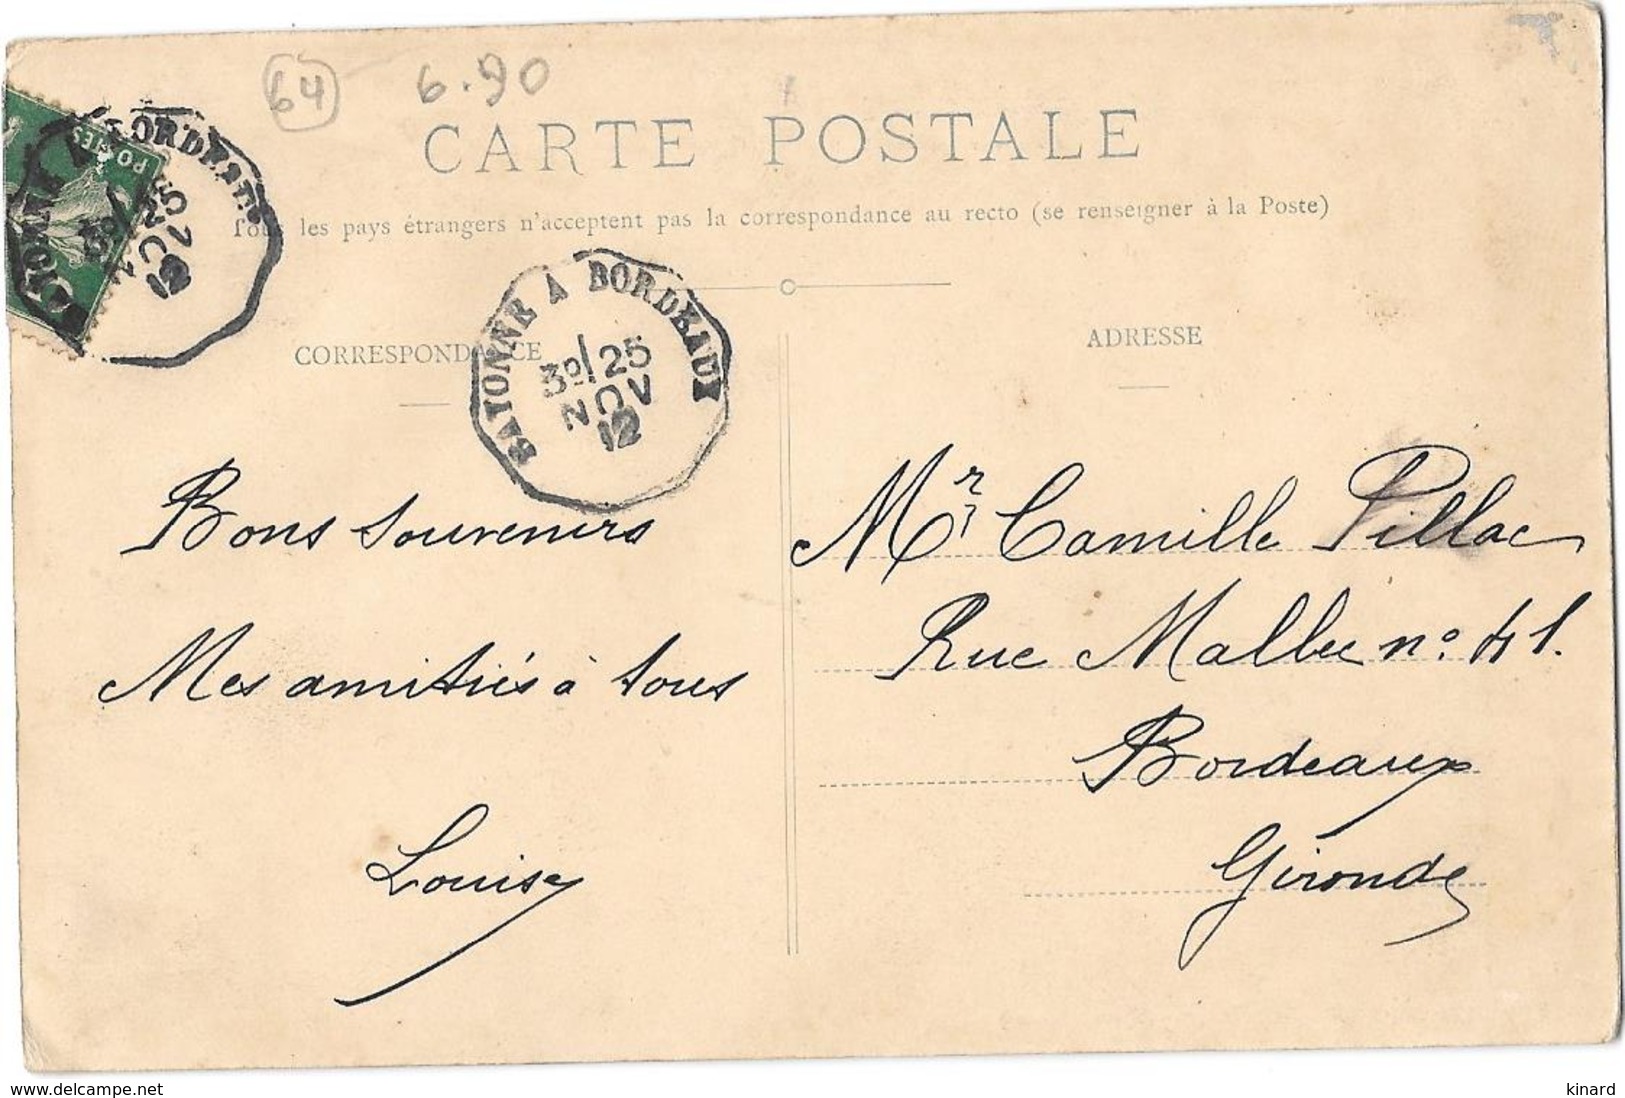 64 6.90
POSTES
CARTE POSTALE
Tous les pays étrangers n'acceptent pas la correspondance au recto (se renseigner à la Poste)
BAYONNE A BORDEAUX
3º/25
NOV
12
BAYONNE A BORDEAUX
3º/25
NOV
12
CORRESPONDANCE
ADRESSE
Bons souvenirs
Mes amitiés à tous
Louise
Mr Camille Pillac
Rue Malbec nº 41.
Bordeaux
Gironde
www.delcampe.net
kinard